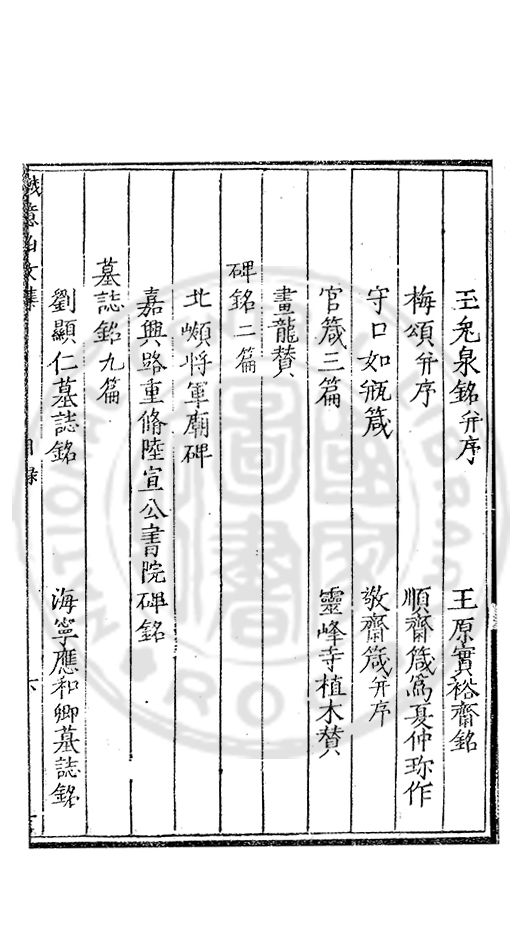 玉兔泉銘并序　王原實裕齋銘
梅頌并序　順齋箴爲夏仲珎作
守口如瓶箴　敬齋箴并序
官箴三篇　靈峰寺植木贊
畫龍贊
碑銘二篇
北嶽將軍廟碑
嘉興路重脩陸宣公書院碑銘
墓誌銘九篇
劉顯仁墓誌銘　海寧應和卿墓誌銘